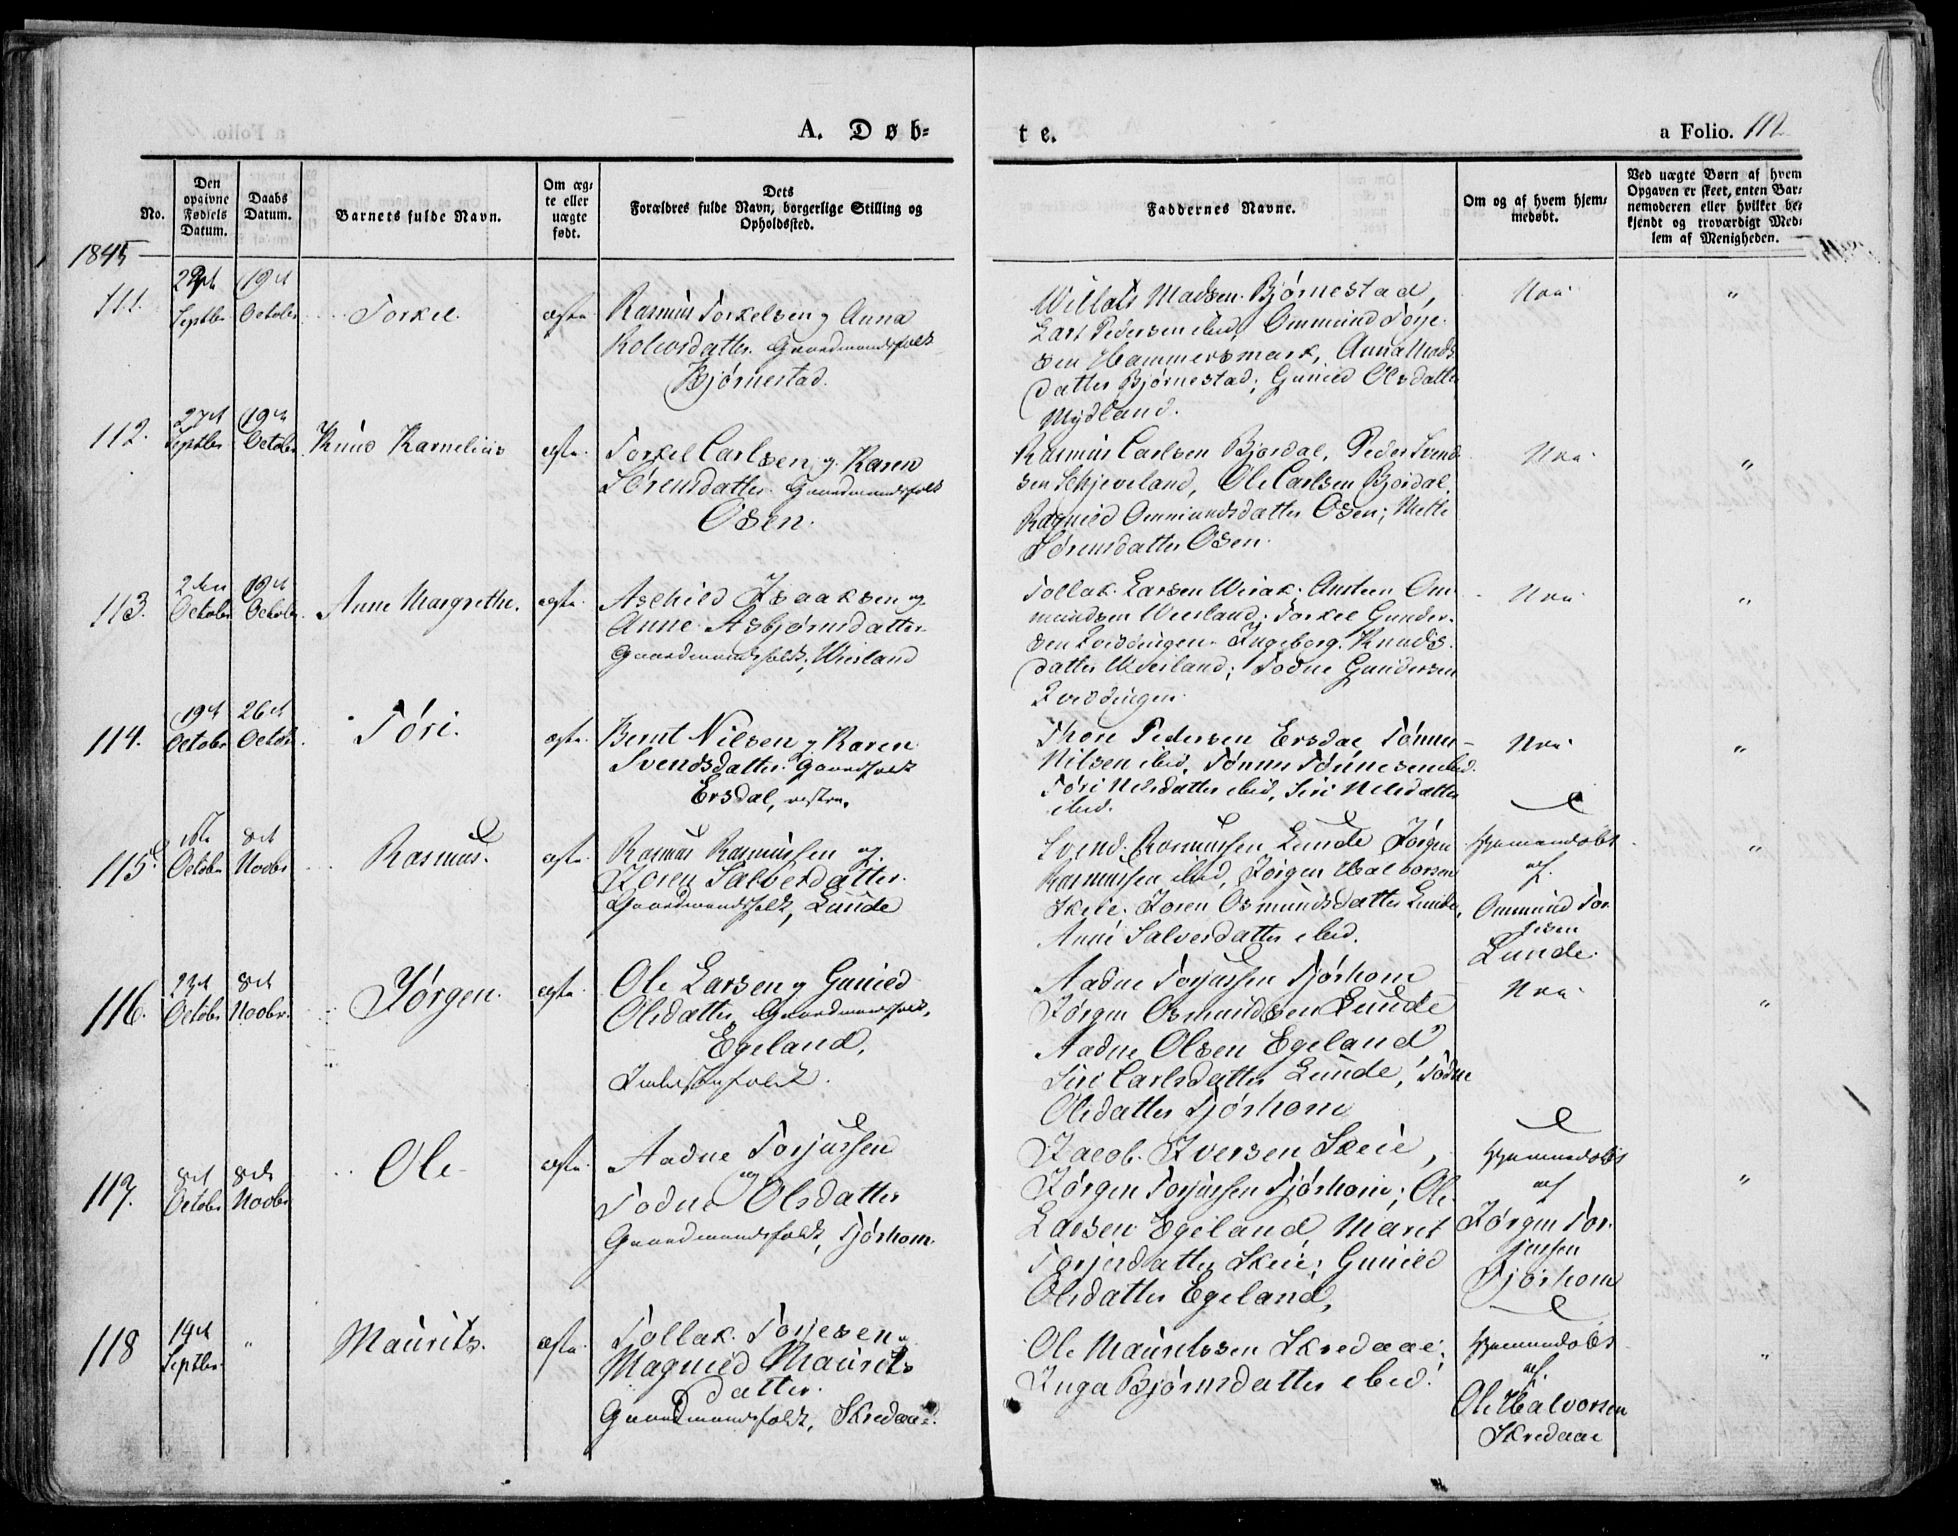 A. Døb-
te.
a Folio. 112
No.
Den opgivne Fødsels Datum.
Daabs Datum.
Barnets fulde Navn.
Om ægte eller uægte født.
Dets Forældres fulde Navn, borgerlige Stilling og Opholdssted.
Faddernes Navne.
Om og af hvem hjemmedøbt.
Ved uægte Børn af hvem Opgaven er skeet, enten Barnemoderen eller hvilket bekjendt og troværdigt Medlem af Menigheden.
1845
111.
Septbr
19de October
Torkel.
ægte.
Rasmus Torkelsen og Anna
Gaardmandsfolk
Bjørnestad.
Madsen Bjørnestad,
Lars Pedersen ibid, Ommund Torje-
sen Hammersmark, Anna Mads
datter Bjørnestad; Gunild Olsdatter
Mydland.
Nei
"
112.
27de Septbr
19de October
Knud Kornelius
ægte.
Torkel Carlsen og Karen
Sørensdatter Gaardmandsfolk
Osen.
Rasmus Carlsen Bjordal, Peder Svend
sen Schjeveland, Ole Carlsen Bjordal
Ragnild Ommundsdatter Osen; Mette
Sørensdatter Osen.
Nei
"
113.
2den October
19de October
Anne Margrethe.
ægte.
Aschild Isaaksen og
Anne Asbjørnsdatter
Gaardmandsfolk, Wersland
Tollak Larsen Wirak, Om
mundsen Wersland; Torkel Gunder-
sen Qviddingen Ingeborg Knuds
datter Wersland; Todne Gundersen
Qviddingen
Nei
"
114.
19de October
26de October
Tøri.
ægte.
Bernt Nilsen og Karen
Svendsdatter Gaardfolk
Ersdal, vestre.
Thore Pedersen Ersdal Tønnes
Nilsen ibid, Tønnes Tønnesen ibid.
Tøri Nilsdatter ibid, Siri Nilsdatter
ibid.
Nei
"
115.
16de October
8de Novbr
Rasmus.
ægte.
Rasmus Rasmussen og
Joren Salvesdatter
Gaardmandsfolk, Lunde
Svend Rasmussen Lunde Jørgen
Rasmussen ibid, Jørgen Halvorsen
Skeie. Joren Osmundsdatter Lunde,
Anne Salvesdatter ibid.
Hjemmedøbt
af
Ommund Tor
jesen
Lunde.
"
116.
23de October
8de Novbr.
Jørgen.
ægte.
Ole Larsen og Gunild
Olsdatter, Gaardmandsfolk,
Egeland,
Inderstfolk.
Aadne Torjussen Tjørhom
Jørgen Osmundsen Lunde
Aadne Olsen Egeland
Siri Carlsdatter Lunde, Todne
Olsdatter Tjørhom
Nei
"
117.
8de October
8de Novbr
Ole
ægte.
Aadne Torjussen
og
Todne Olsdatter
Gaardmandsfolk, Tjørhom.
Jacob Iversen Skeie,
Jørgen Torjussen Tjørhom; Ole
Larsen Egeland, Maret
Torjesdatter Skeie; Gunild
Olsdatter Egeland,
Hjemmedøbt
af
Jørgen Tor-
jussen
Tjørhom
"
118
19de Septbr.
"
Maurits.
ægte.
Tollak Torjesen og
Magnild Maurits
datter.
Gaardmandsfolk, Skredaae.
Ole Mauritssen Skredaae;
Inga Bjørnsdatter ibid.
Hjemmedøbt
af
Ole Halvorsen
Skredaae
"